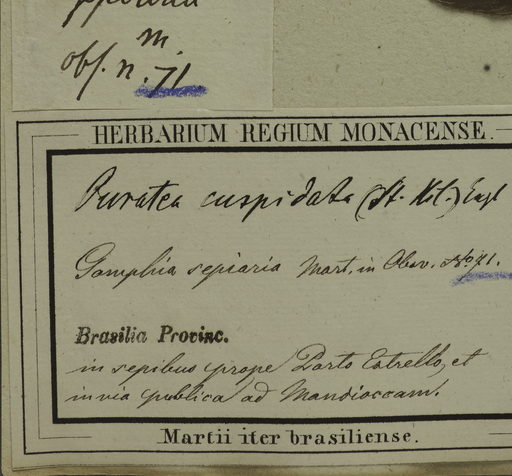 m.
obs. n. 71.
HERBARIUM REGIUM MONACENSE.
Ouratea cuspidata (St. Hil.) Engl
Gomphia sepiaria Mart. in Obsv. No. 71.
Brasilia Provinc.
in sepibus prope Porto Estrello, et
in via publica ad Mandioccam.
Martii iter brasiliense.